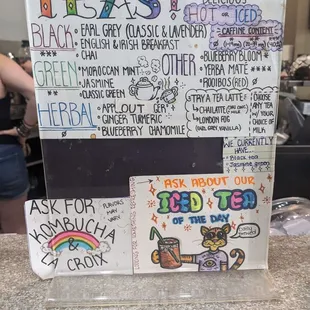 TEAS!
DELICIOUS
HOT & ICED
BLACK
• EARL GREY (CLASSIC & LAVENDER)
• ENGLISH & IRISH BREAKFAST
• CHAI
CAFFEINE CONTENT
GREEN
• MOROCCAN MINT
• JASMINE
• CLASSIC GREEN
OTHER
• BLUEBERRY BLOOM
• YERBA MATE
• ROOIBOS (RED)
HERBAL
• GINGER TUMERIC
• BLUEBERRY CHAMOMILE
TRY A TEA LATTE!
CHAI LATTE
LONDON FOG
(EARL GREY, VANILLA)
CHOOSE
ANY TEA
W/ YOUR
CHOICE OF
MILK
WE CURRENTLY
HAVE...
• Black iced
• Jasmine green
ASK FOR
KOMBUCHA
&
LA CROIX
FLAVORS
MAY
VARY
ASK ABOUT OUR
ICED TEA
OF THE DAY